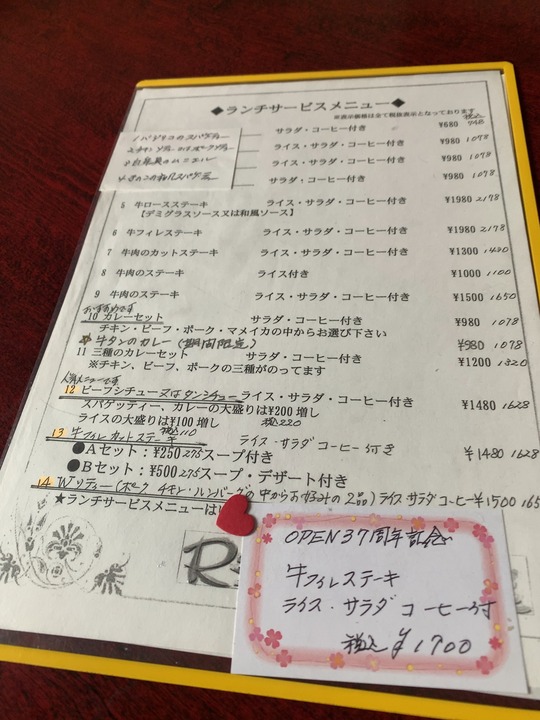 ◆ランチサービスメニュー◆
※表示価格は全て税抜表示となっております
税込
サラダ・コーヒー付き ¥680 748
ライス・サラダ・コーヒー付き ¥980 1078
ライス・サラダ・コーヒー付き ¥980 1078
サラダ・コーヒー付き ¥980 1078
5 牛ロースステーキ ライス・サラダ・コーヒー付き ¥1980 2178
【デミグラスソース又は和風ソース】
6 牛フィレステーキ ライス・サラダ・コーヒー付き ¥1980 2178
7 牛肉のカットステーキ ライス・サラダ・コーヒー付き ¥1300 1430
8 牛肉のステーキ ライス付き ¥1000 1100
9 牛肉のステーキ ライス・サラダ・コーヒー付き ¥1500 1650
おすすめです
10 カレーセット サラダ・コーヒー付き ¥980 1078
チキン・ビーフ・ポーク・マメイカの中からお選び下さい
牛タンのカレー(期間限定) ¥980 1078
11 三種のカレーセット サラダ・コーヒー付き ¥1200 1320
※チキン、ビーフ、ポークの三種がのってます
人気メニューです
12 ビーフシチュー又はタンシチュー ライス・サラダ・コーヒー付き ¥1480 1628
スパゲッティー、カレーの大盛りは¥200増し
税込220
ライスの大盛りは¥100増し
税込110
13 牛フィレカットステーキ ライス・サラダ コーヒー付き ¥1480 1628
●Aセット:¥250 275 スープ付き
●Bセット:¥500 スープ・デザート付き
14 Wリティー(ポーク チキン・ハンバーグの中からお好みの2品)ライス サラダ コーヒー ¥1500 165
★ランチサービスメニューは
OPEN37周年記念
牛フィレステーキ
ライス・サラダ コーヒー付
税込 ¥1700